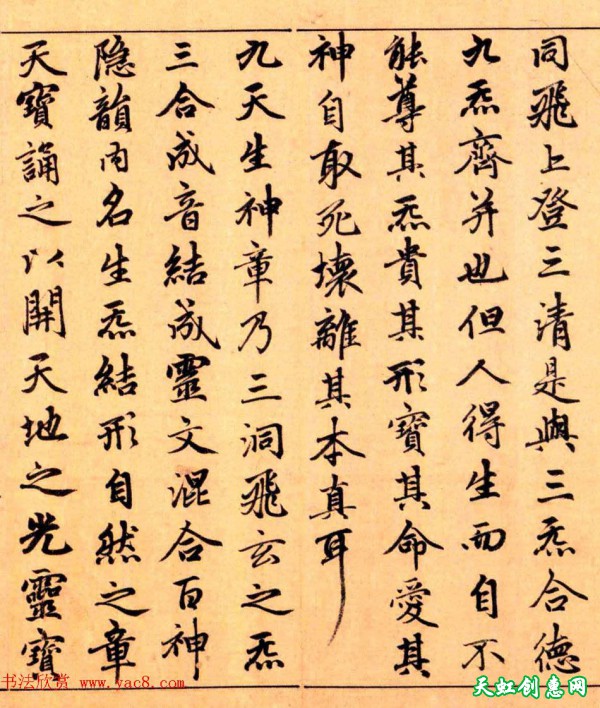 同飛上登三清是與三炁合德
九炁齊并也但人得生而自不
能尊其炁貴其形寶其命愛其
神自取死壞離其本真耳
九天生神章乃三洞飛玄之炁
三合成音結成靈文混合百神
隐韻內名生炁結形自然之章
天寶誦之以開天地之光靈寶
书法欣赏 www.yac8.com
天虹创惠网